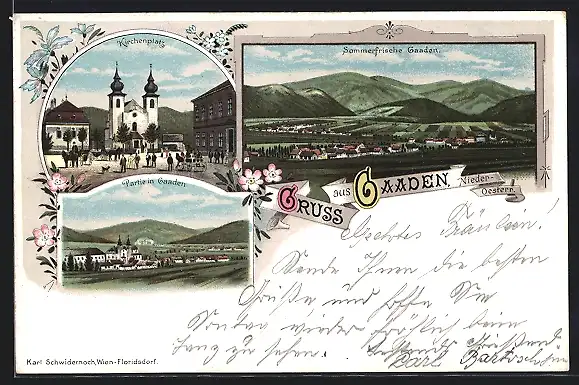 Kirchenplatz
Sommerfrische Gaaden.
Partie in Gaaden
GRUSS AUS GAADEN, Nieder-
Oesterr.
Geehrtes Fräulein!
Sende Ihnen die besten
Grüße und hoffe Sie
Sonntag wieder fröhlich beim
Tanz zu sehen.
Karl
Karl Schwidernoch, Wien-Floridsdorf.